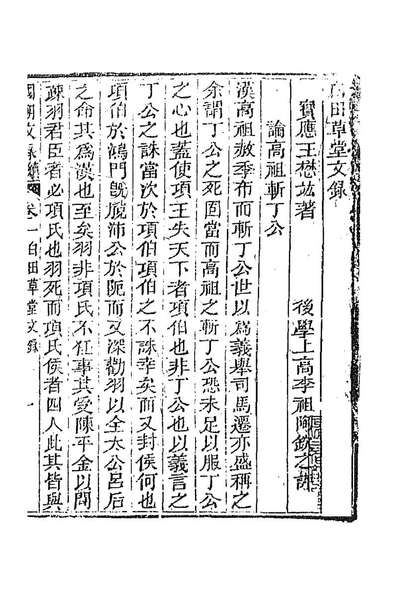 白田草堂文錄
寶應王懋竑著　後學上高李祖陶欽之評
論高祖斬丁公
漢高祖赦季布而斬丁公世以為義舉司馬遷亦盛稱之
余謂丁公之死固當而高祖之斬丁公恐未足以服丁公
之心也蓋使項王失天下者項伯也非丁公也以義言之
丁公之誅當次於項伯項伯之不誅幸矣而又封侯何也
項伯於鴻門旣脫沛公於阨而又深勸羽以全太公呂后
之命其為漢也至矣羽非項氏不任事其受陳平金以間
疎羽君臣者必項氏也羽死而項氏侯者四人此其皆與
國朝文錄續 卷一白田草堂文錄 一